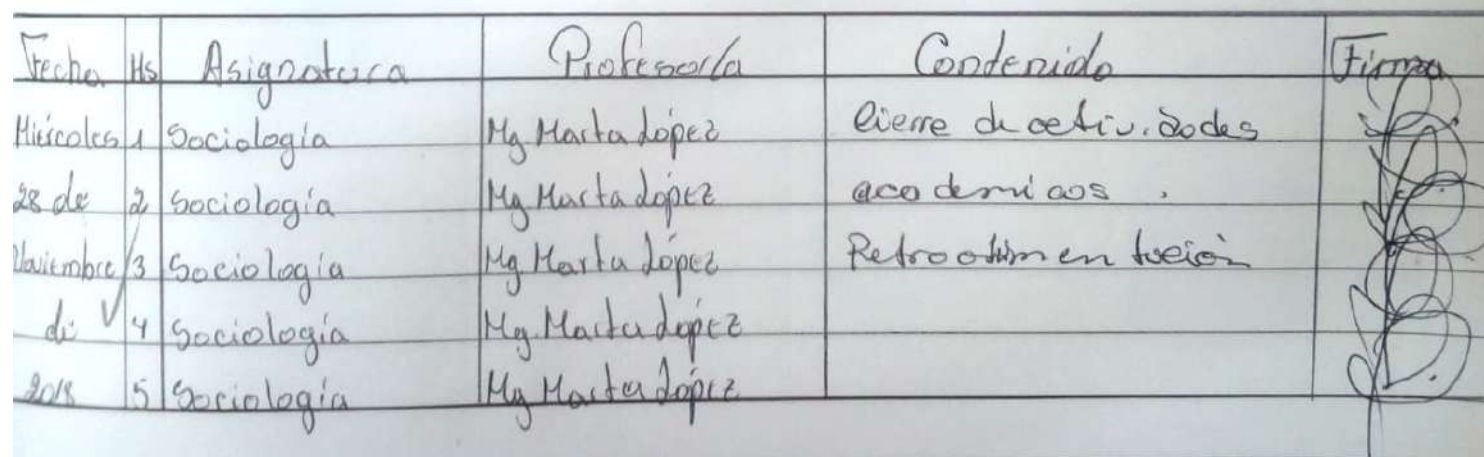 Fecha Hs Asignatura Profesor/a Contenido Firma
Miércoles 1 Sociología Mg Marta López Cierre de actividades
28 de 2 Sociología Mg Marta López academicas.
Noviembre 3 Sociología Mg Marta López Retroalimentación
de 4 Sociología Mg. Marta López
2018 5 Sociología Mg Marta López